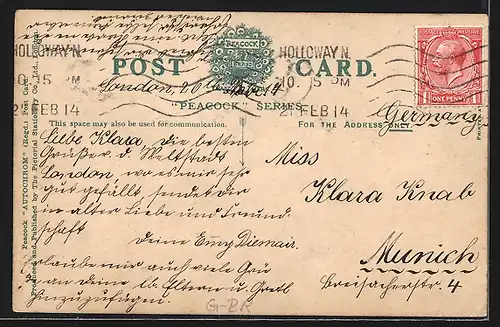 HOLLOWAY N.
10.15 PM
21 FEB 14
PEACOCK
BRAND
POST CARD.
HOLLOWAY N.
10.15 PM
21 FEB 14
POSTAGE REVENUE
ONE PENNY
"PEACOCK" SERIES
This space may also be used for communication.
FOR THE ADDRESS ONLY.
Peacock "AUTOCHROM" (Regd.) Post Card
Produced and Published by The Pictorial Stationery Co., Ltd., London.
London, 20
Liebe Klara die besten
Grüße v. d. Weltstadt
London, wo es mir sehr
gut gefällt sendet dir
in alter Liebe und Freund
schaft
Deine Emy Diemair.
Erlaube mir auch viele
an deine lb. Eltern u. Gretl
hinzuzufügen.
Germany
Miss
Klara Knab
Munich
Breisacherstr. 4
G-BR